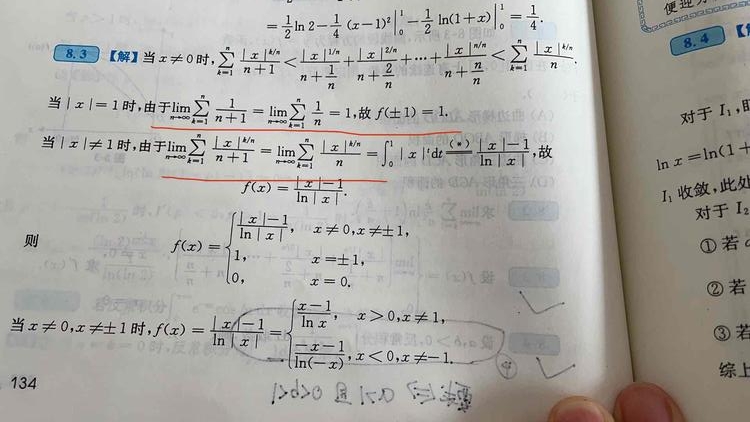 = \frac{1}{2}\ln 2 - \frac{1}{4}(x-1)^2|_0^1 - \frac{1}{2}\ln(1+x)|_0^1 = \frac{1}{4}.
8.3 【解】当 x≠0 时, \sum_{k=1}^{n} \frac{|x|^{k/n}}{n+1} < \frac{|x|^{1/n}}{n+\frac{1}{n}} + \frac{|x|^{2/n}}{n+\frac{2}{n}} + ⋯ + \frac{|x|^{\frac{n}{n}}}{n+\frac{n}{n}} < \sum_{k=1}^{n} \frac{|x|^{k/n}}{n}.
当 |x|=1 时, 由于 \lim_{n→∞} \sum_{k=1}^{n} \frac{1}{n+1} = \lim_{n→∞} \sum_{k=1}^{n} \frac{1}{n} = 1, 故 f(±1)=1.
当 |x|≠1 时, 由于 \lim_{n→∞} \sum_{k=1}^{n} \frac{|x|^{k/n}}{n+1} = \lim_{n→∞} \sum_{k=1}^{n} \frac{|x|^{k/n}}{n} = \int_0^1 |x|^t dt \overset{(*)}{=} \frac{|x|-1}{\ln|x|}, 故
f(x) = \frac{|x|-1}{\ln|x|}.
则 f(x) = \begin{cases} \frac{|x|-1}{\ln|x|}, & x≠0, x≠±1, \\ 1, & x=±1, \\ 0, & x=0. \end{cases}
当 x≠0, x≠±1 时, f(x) = \frac{|x|-1}{\ln|x|} = \begin{cases} \frac{x-1}{\ln x}, & x>0, x≠1, \\ \frac{-x-1}{\ln(-x)}, & x<0, x≠-1. \end{cases}
134
8.4
对于 I₁,
ln x = ln(1+
I₁ 收敛, 此处
对于 I₂
① 若
② 若
③ 若
综上